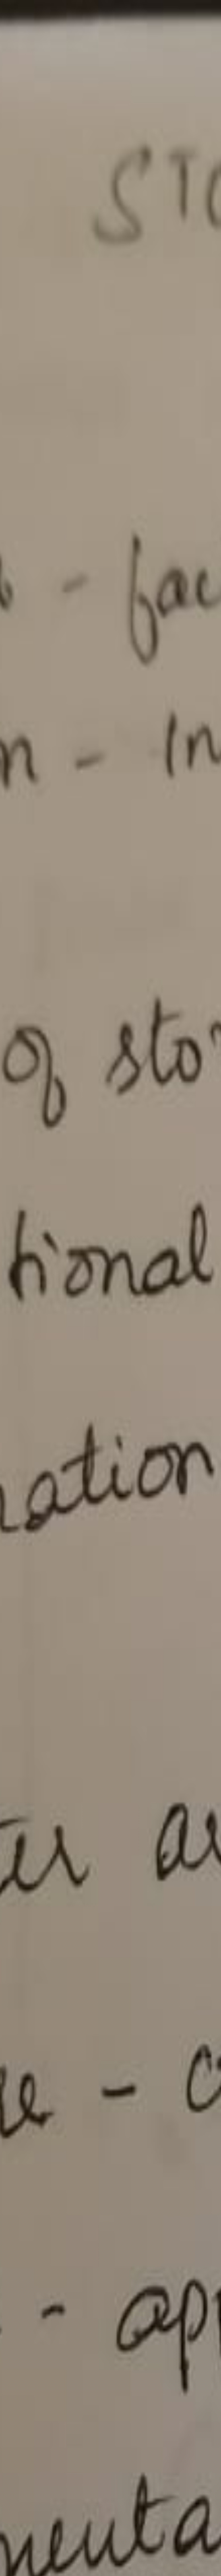 STO
- fac
n - In
of stor
tional
nation
ter ar
re - c
- app
menta